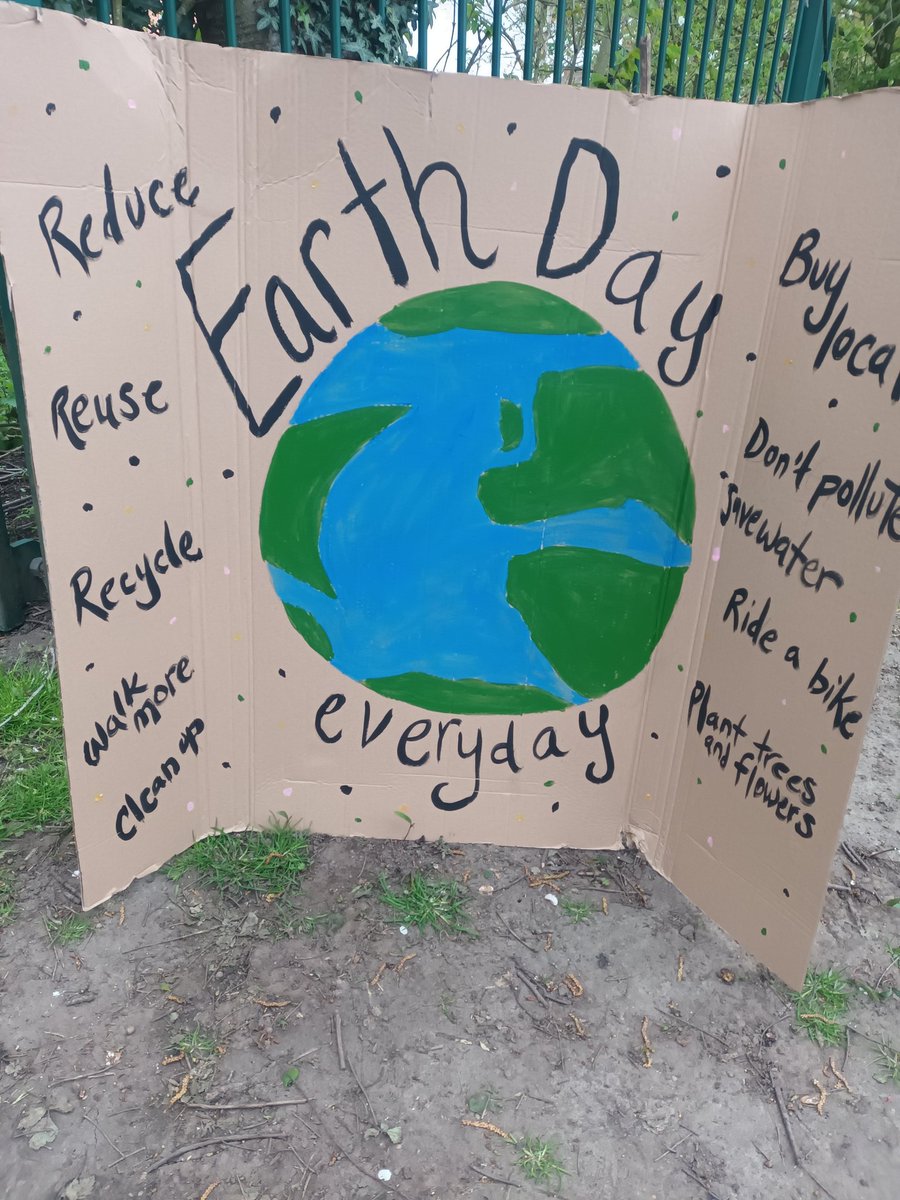 Earth Day
everyday
Reduce
Reuse
Recycle
Walk
more
Clean up
Buy
local
Don't pollute
save water
Ride a bike
Plant trees
and flowers